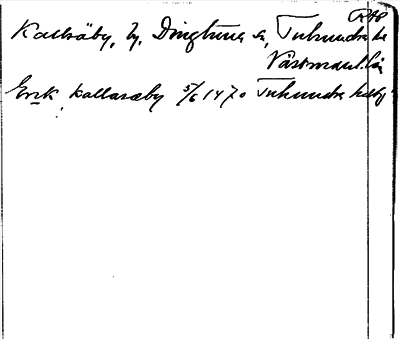 R48
Kallsäby, by, Dingtuna sn, Tuhundra hd
Västmanl. län
Erik kallasæby 5/6 1470 Tuhundra